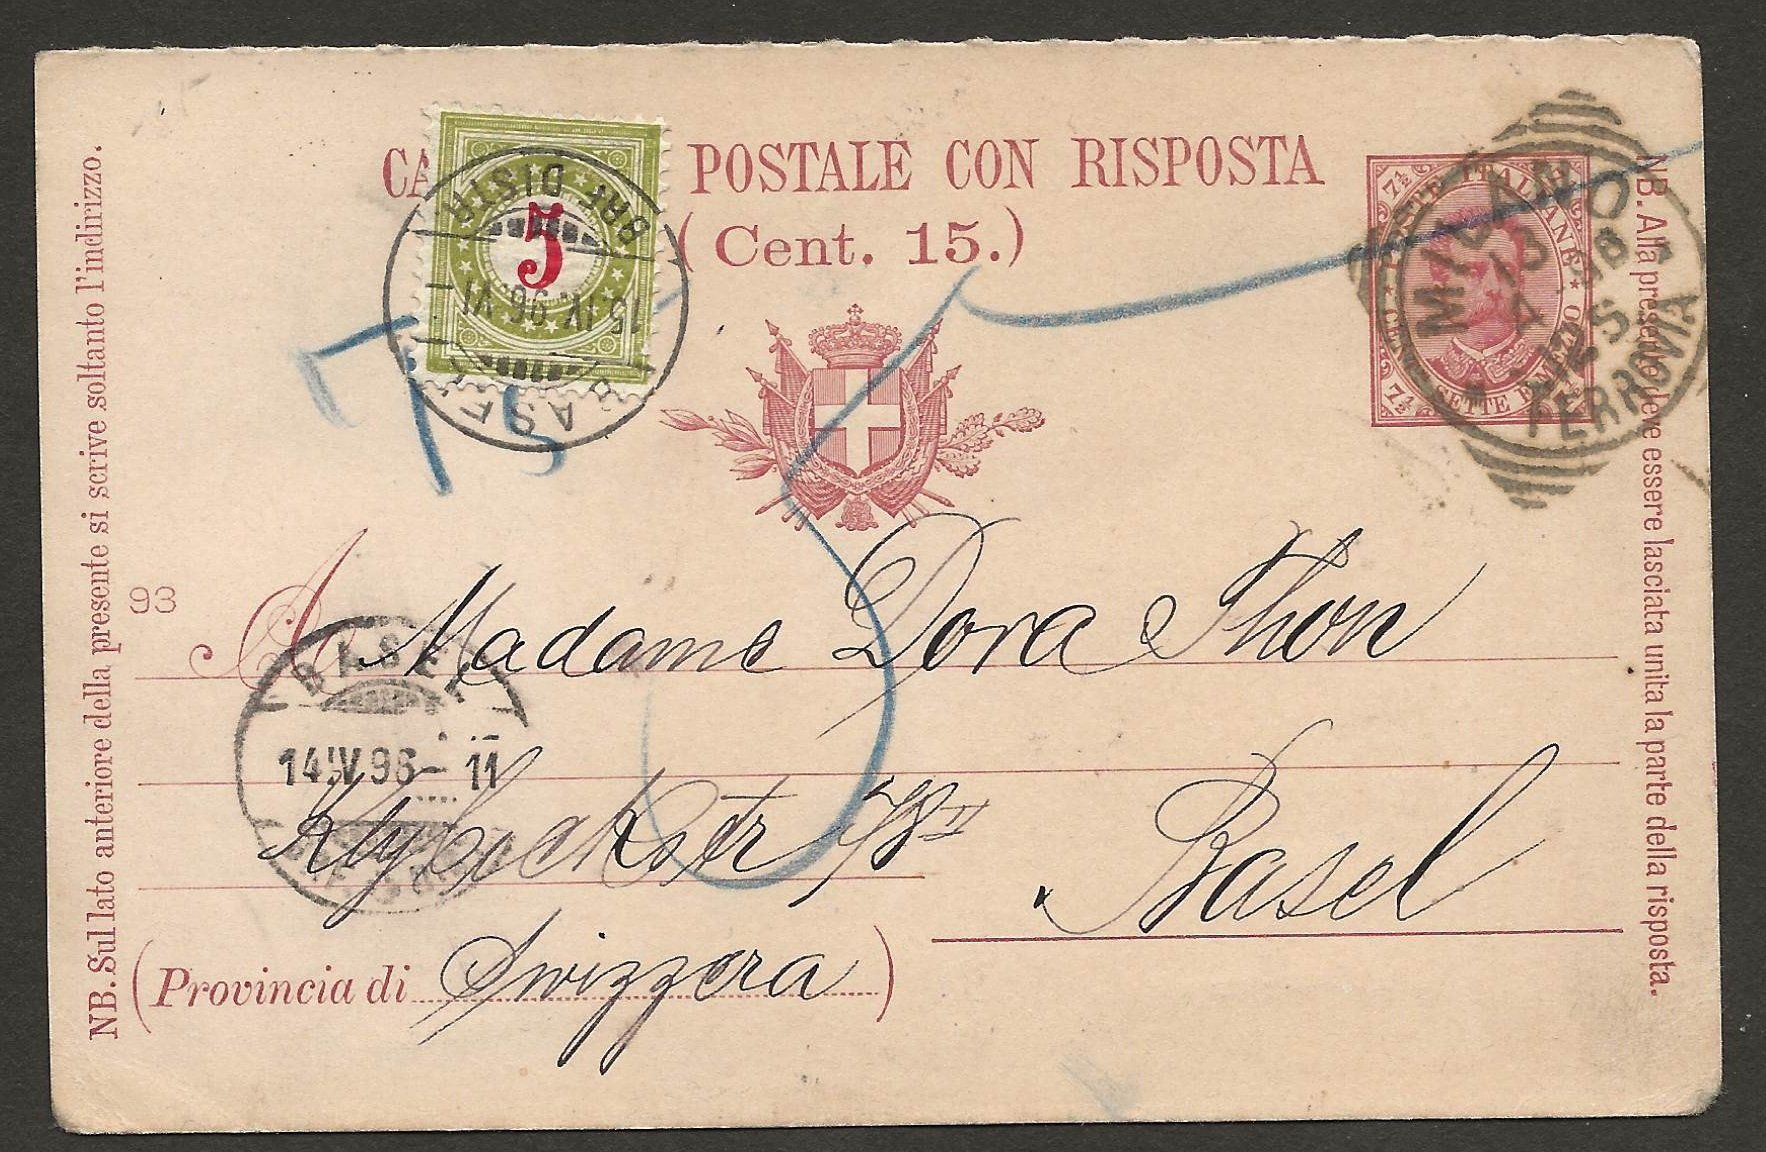 CA POSTALE CON RISPOSTA
(Cent. 15.)
5
BASEL
15.IV.96.VI
BRF. DISTR.
7½ 7½
POSTE ITALIANE
CENT. SETTE E MEZZO
7½ 7½
MILANO
13
96
FERROVIA
T
5
5
93
A Madame Dora Thon
BASEL
14.IV.96-11
Klybeckstr 78 II
Basel
(Provincia di Swizzera)
NB. Sul lato anteriore della presente si scrive soltanto l'indirizzo.
NB. Alla presente deve essere lasciata unita la parte della risposta.